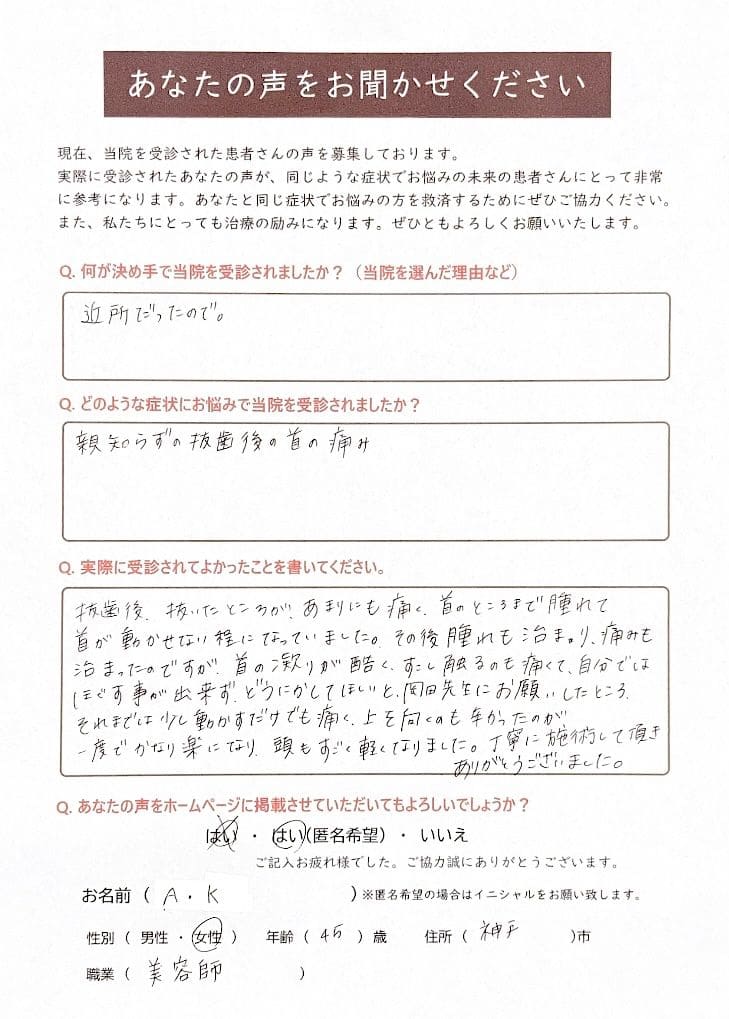 あなたの声をお聞かせください
現在、当院を受診された患者さんの声を募集しております。
実際に受診されたあなたの声が、同じような症状でお悩みの未来の患者さんにとって非常
に参考になります。あなたと同じ症状でお悩みの方を救済するためにぜひご協力ください。
また、私たちにとっても治療の励みになります。ぜひともよろしくお願いいたします。
Q. 何が決め手で当院を受診されましたか？（当院を選んだ理由など）
近所だったので。
Q. どのような症状にお悩みで当院を受診されましたか？
親知らずの抜歯後の首の痛み
Q. 実際に受診されてよかったことを書いてください。
抜歯後、抜いたところが、あまりにも痛く、首のところまで腫れて
首が動かせない程になっていました。その後腫れも治まり、痛みも
治まったのですが、首の凝りが酷く、すこし触るのも痛くて、自分では
ほぐす事が出来ず、どうにかしてほしいと、岡田先生にお願いしたところ、
それまでは少し動かすだけでも痛く、上を向くのも辛かったのが
一度でかなり楽になり、頭もすごく軽くなりました。丁寧に施術して頂き
ありがとうございました。
Q. あなたの声をホームページに掲載させていただいてもよろしいでしょうか？
はい ・ はい(匿名希望) ・ いいえ
ご記入お疲れ様でした。ご協力誠にありがとうございます。
お名前 ( A・K ) ※匿名希望の場合はイニシャルをお願い致します。
性別 ( 男性 ・ 女性 ) 年齢 ( 45 ) 歳 住所 ( 神戸 )市
職業 ( 美容師 )